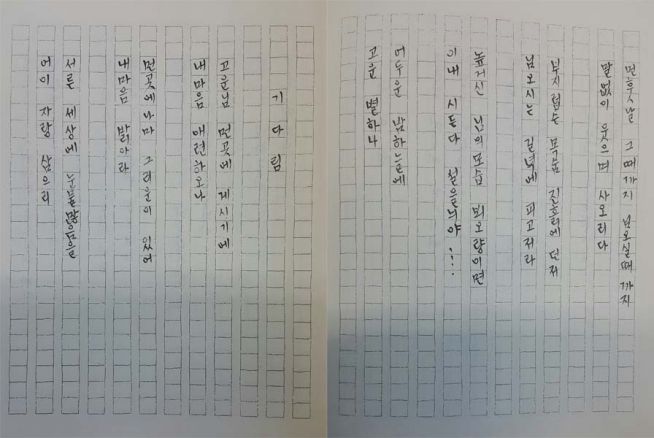 기다림
고운님 먼곳에 계시기에
내마음 애련하오나
먼곳에나마 그리운이 있어
내마음 밝아라
서른 세상에 눈물많음을
어이 자랑 삼으리
먼훗날 그때까지 님오실때까지
말없이 웃으며 사오리다
부지럽슨 목숨 진흙에 던져
님오시는 길녘에 피고져라
높거신 님의모습 뵈오량이면
이내 시든다 설을늬야 ....
어두운 밤하늘에
고운 별하나